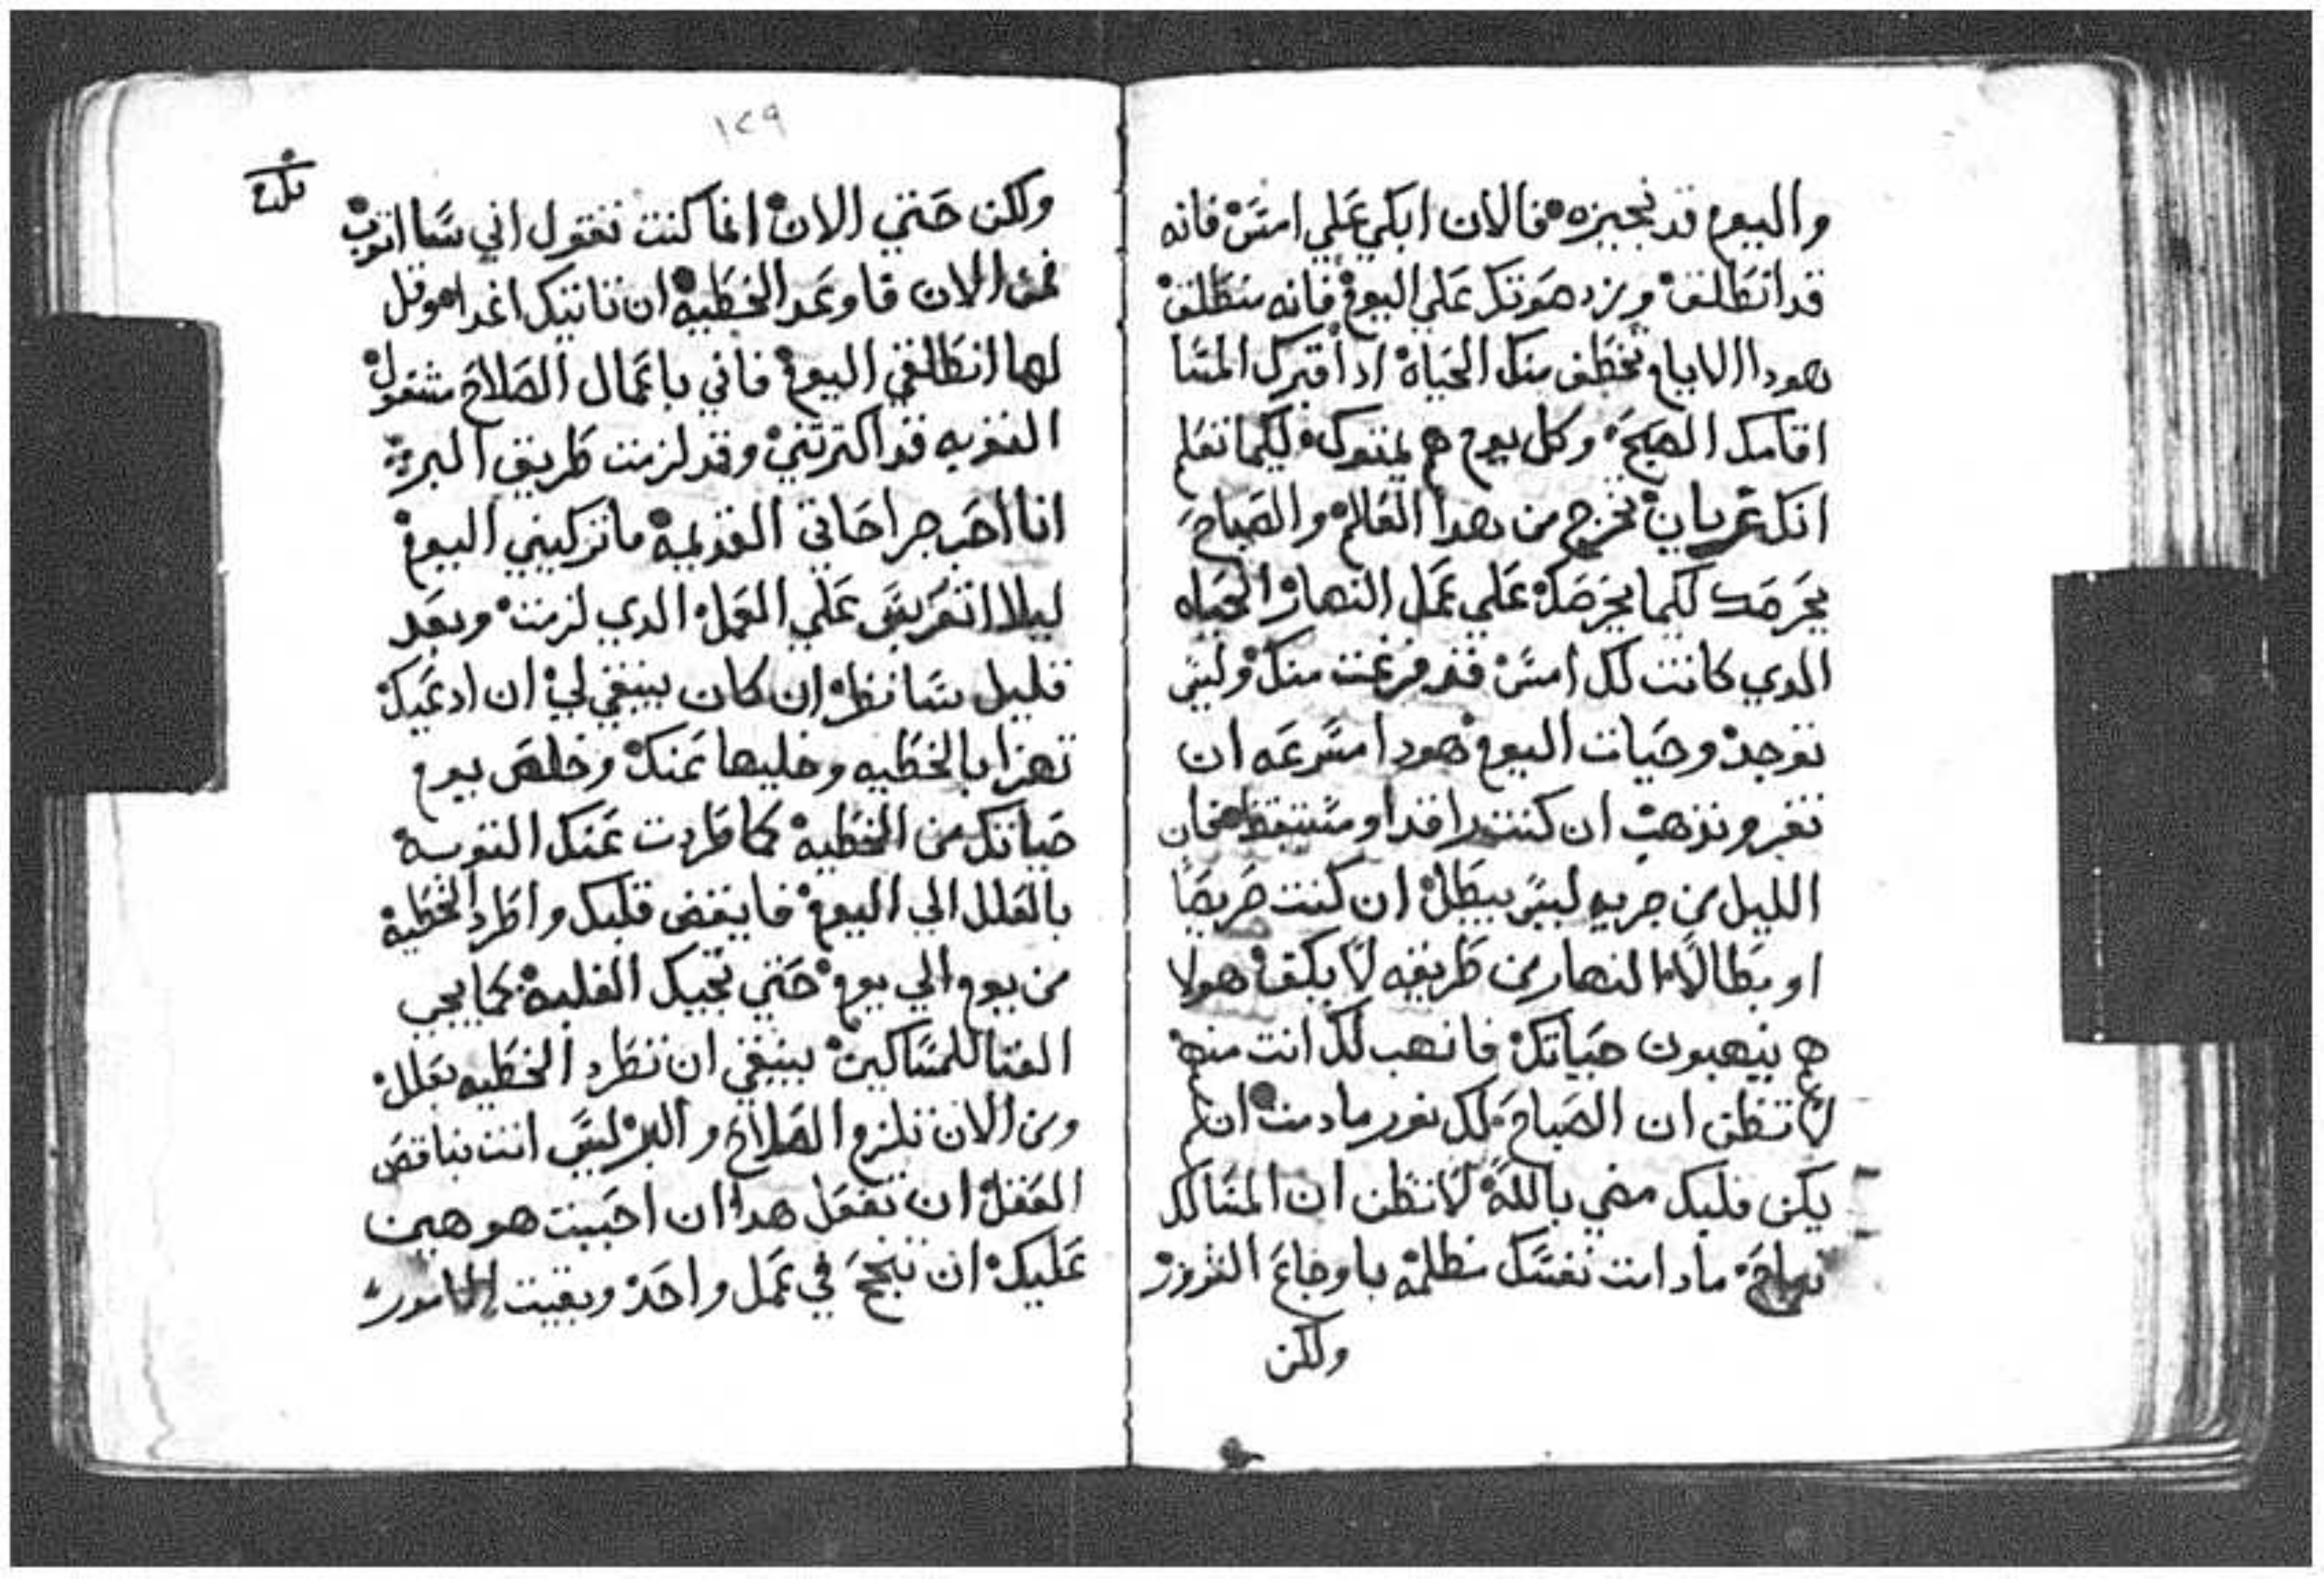 واليوم قد نجيزه فالان ابكي علي امس فانه
قد انطلق ويزد هوتك علي اليوم فانه منطلق
هودا الايام تخطف منك الحياة ادا قبرك المسا
اقامك الصبح وكل يوم هم يمتوك لكيما تعلم
انك عريان تخرج من هدا العالم والصباح
يحرصك لكيما يحرصك علي عمل النهار الحياه
الدي كانت لك امس قد فرغت منك وليس
توجد وحيات اليوم هودا مسرعه ان
تفر وتذهب ان كنت راقدا ومستيقظا فان
الليل من جريه ليس يبطل ان كنت حريصا
او بطالا النهار من طريقه لا يكف هولا
هم ينهبون حياتك فانهب لك انت منهم
لا تظن ان الصباح لك نور مادمت ان لم
يكن قلبك مضي بالله لا تظن ان المسا لك
نياح مادامت نفسك مظلمه باوجاع الشرور
ولكن
١٢٩
بلغ
ولكن حتي الان انما كنت تقول اني سااتوب
فمن الان فاوعد الخطيه ان تاتيك اغدا وقل
لها انطلقي اليوم فاني باعمال الصلاح مشغول
التوبه قد اكترتني وقد لزمت طريق البر
انا احب جراحاتي القديمه ماتركيني اليوم
ليلا اتعربس علي العمل الدي لزمت وبعد
قليل سانظر ان كان ينبغي لي ان ادعيك
تهزا بالخطيه وخليها عنك وخلص يوم
حياتك من الخطيه كما طردت عنك التوبه
بالعلل الي اليوم فايقض قلبك واطرد الخطيه
من يوم الي يوم حتي تجيك الغلبه كما يجي
الغنا للمساكين ينبغي ان تطرد الخطيه بعلل
ومن الان تلزم الصلاح والبر ليس انت بناقص
العقل ان تفعل هدا ان احببت هو هين
عليك ان تنجح في عمل واحد وبقيت الامور